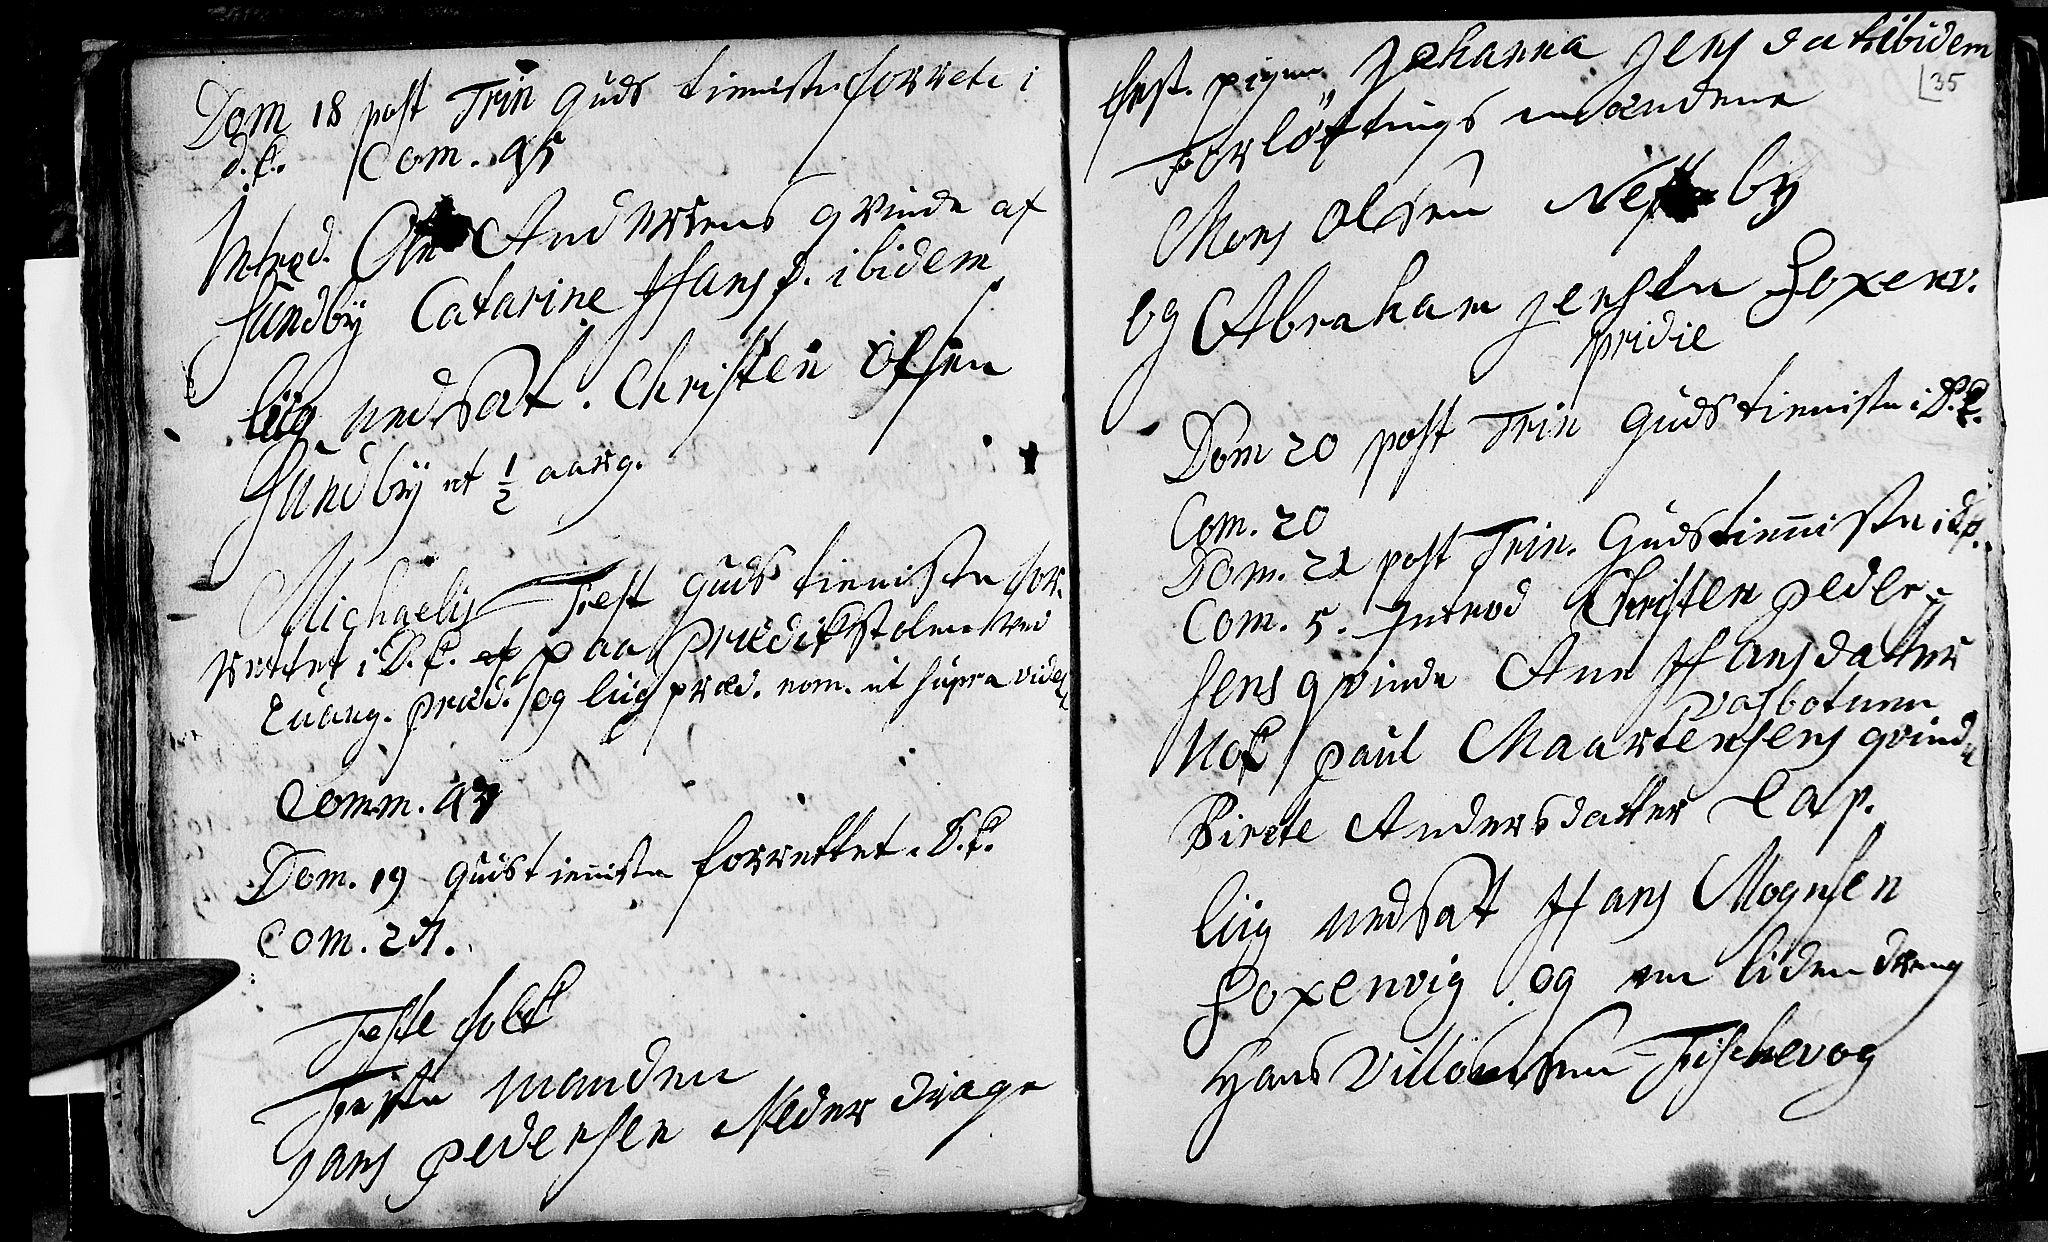 Dom 18 post Trin Guds tieniste forrete i
d. k. Com. 45
Introd. Ole Andersens qvinde af
Sundby Catarine Hans d. ibidem
liig nedsat. Christen Olsen
Sundby et 1/2 aarg.
Michaelis Fest Guds tienisten for-
rettet i D. K. paa Prædikstolen ved
Evang. præd. og liig præd. nom. ut supra videt
Comm. 47
Dom. 19 Guds tienisten forrettet i D. K.
Com. 21.
Feste folk
Feste manden
Hans Pedersen Neder Drage
35
fest. pigen Johanna Jens dat ibidem
Forløftings mændene
Mons Olsen Nesby
og Abraham Jensen Soxenv.
pridie
Dom 20 post Trin Guds tieniste i D. K.
Com. 20
Dom. 21 post Trin. Guds tieniste i D. K.
Com. 5. Introd Christen Peder-
sens qvinde Ane Hans datter
Vasbotnen
Nok Paul Maartensens qvinde
Birete Anders datter Lap.
liig nedsat Hans Mognsen
Soxenvig og en liden dreng
Hans Villomsen Fischevog